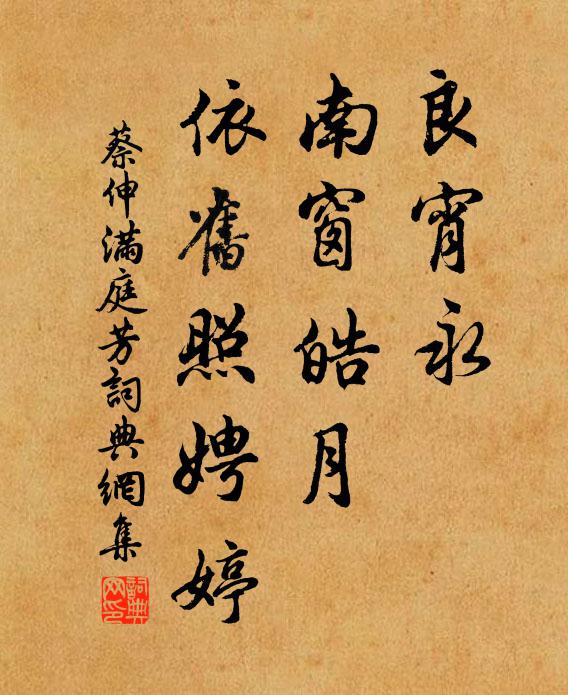 良宵永
南窗皓月
依舊照娉婷
蔡伸滿庭芳詞典網集
詞典网印